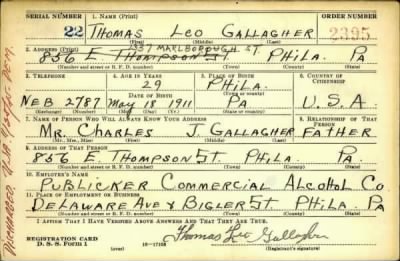 SERIAL NUMBER 1. NAME (Print) ORDER NUMBER
22 THOMAS LEO GALLAGHER 2395
(First) (Middle) (Last)
1337 MARLBOROUGH ST.
2. ADDRESS (Print)
856 E THOMPSON ST PHILA. PA
(Number and street or R. F. D. number) (Town) (County) (State)
3. TELEPHONE 4. AGE IN YEARS 5. PLACE OF BIRTH 6. COUNTRY OF CITIZENSHIP
29 PHILA.
NEB 2787 MAY 18 1911 PA U.S.A.
7. NAME OF PERSON WHO WILL ALWAYS KNOW YOUR ADDRESS 8. RELATIONSHIP OF THAT PERSON
MR. CHARLES J. GALLAGHER FATHER
(Mr., Mrs., Miss) (First) (Middle) (Last)
9. ADDRESS OF THAT PERSON
856 E. THOMPSON ST. PHILA. PA.
(Number and street or R. F. D. number) (Town) (County) (State)
10. EMPLOYER'S NAME
PUBLICKER COMMERCIAL ALCOHOL CO.
11. PLACE OF EMPLOYMENT OR BUSINESS
DELAWARE AVE & BIGLER ST PHILA. PA.
(Number and street or R. F. D. number) (Town) (County) (State)
I AFFIRM THAT I HAVE VERIFIED ABOVE ANSWERS AND THAT THEY ARE TRUE.
REGISTRATION CARD
D. S. S. Form 1 Thomas Leo Gallagher
(Registrant's signature)